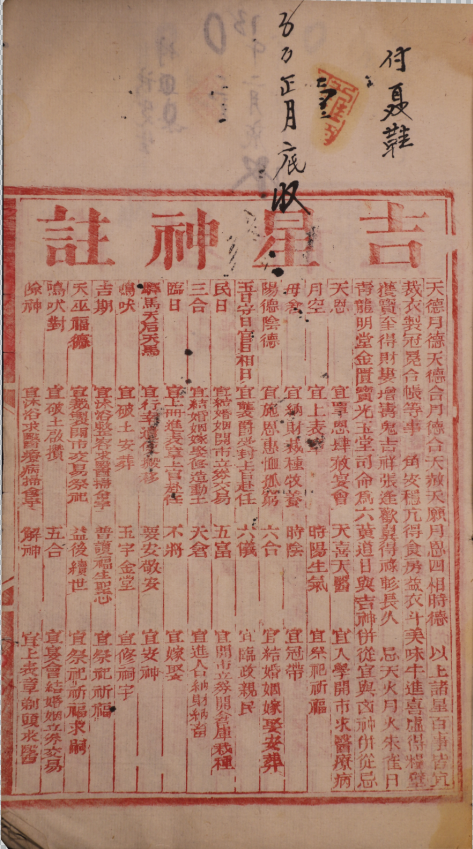 付聂鞋
正月底収
吉星神註
天德月德天德合月德合天赦天願月恩四相時德 以上諸星百事吉
裁衣製冠合帳等事 角安穩亢得食房益衣斗美味牛進喜虛得糧壁
獲寶奎得財婁增壽鬼吉祥張逢歡翼得祿軫長久 忌天火月火朱雀日
青龍明堂金匱寶光玉堂司命爲六黃道日與吉神併從宜與凶神併從忌
天恩 宜覃恩肆赦宴會 天喜天醫 宜入學開市求醫療病
月空 宜上表章 時陽生氣 宜祭祀祈福
母倉 宜納財栽種牧養 時陰 宜冠帶
陽德陰德 宜施恩惠恤孤煢 六合 宜結婚姻嫁娶安葬
王日官日守日相日 宜襲爵受封上官赴任 六儀 宜臨政親民
民日 宜結婚姻開市立券交易 五富 宜開市立券開倉庫栽種
三合 宜結婚姻嫁娶修造動土 天倉 宜進人口納財納畜
臨日 宜上冊進表章上官赴任 不將 宜嫁娶
驛馬天后天馬 宜行 要安敬安 宜安神
鳴吠 宜破土安葬 玉宇金堂 宜修祠宇
吉期 普護福生聖心 宜祭祀祈福
天巫福德 益後續世 宜祭祀祈福求嗣
鳴吠對 宜破土啟攢 五合 宜宴會結婚姻立券交易
除神 宜沐浴求醫療病掃舍宇 解神 宜上表章剃頭求醫